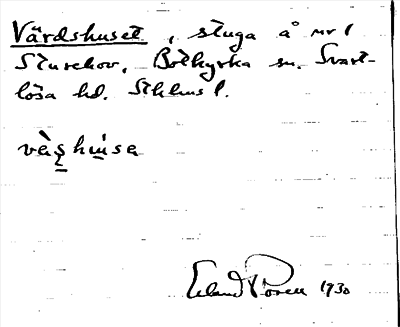 Värdshuset, stuga å nr 1
Sturehov, Botkyrka sn. Svart-
lösa hd. Sthlms l.
vàʂhu̇sa
Erland Rosell 1930